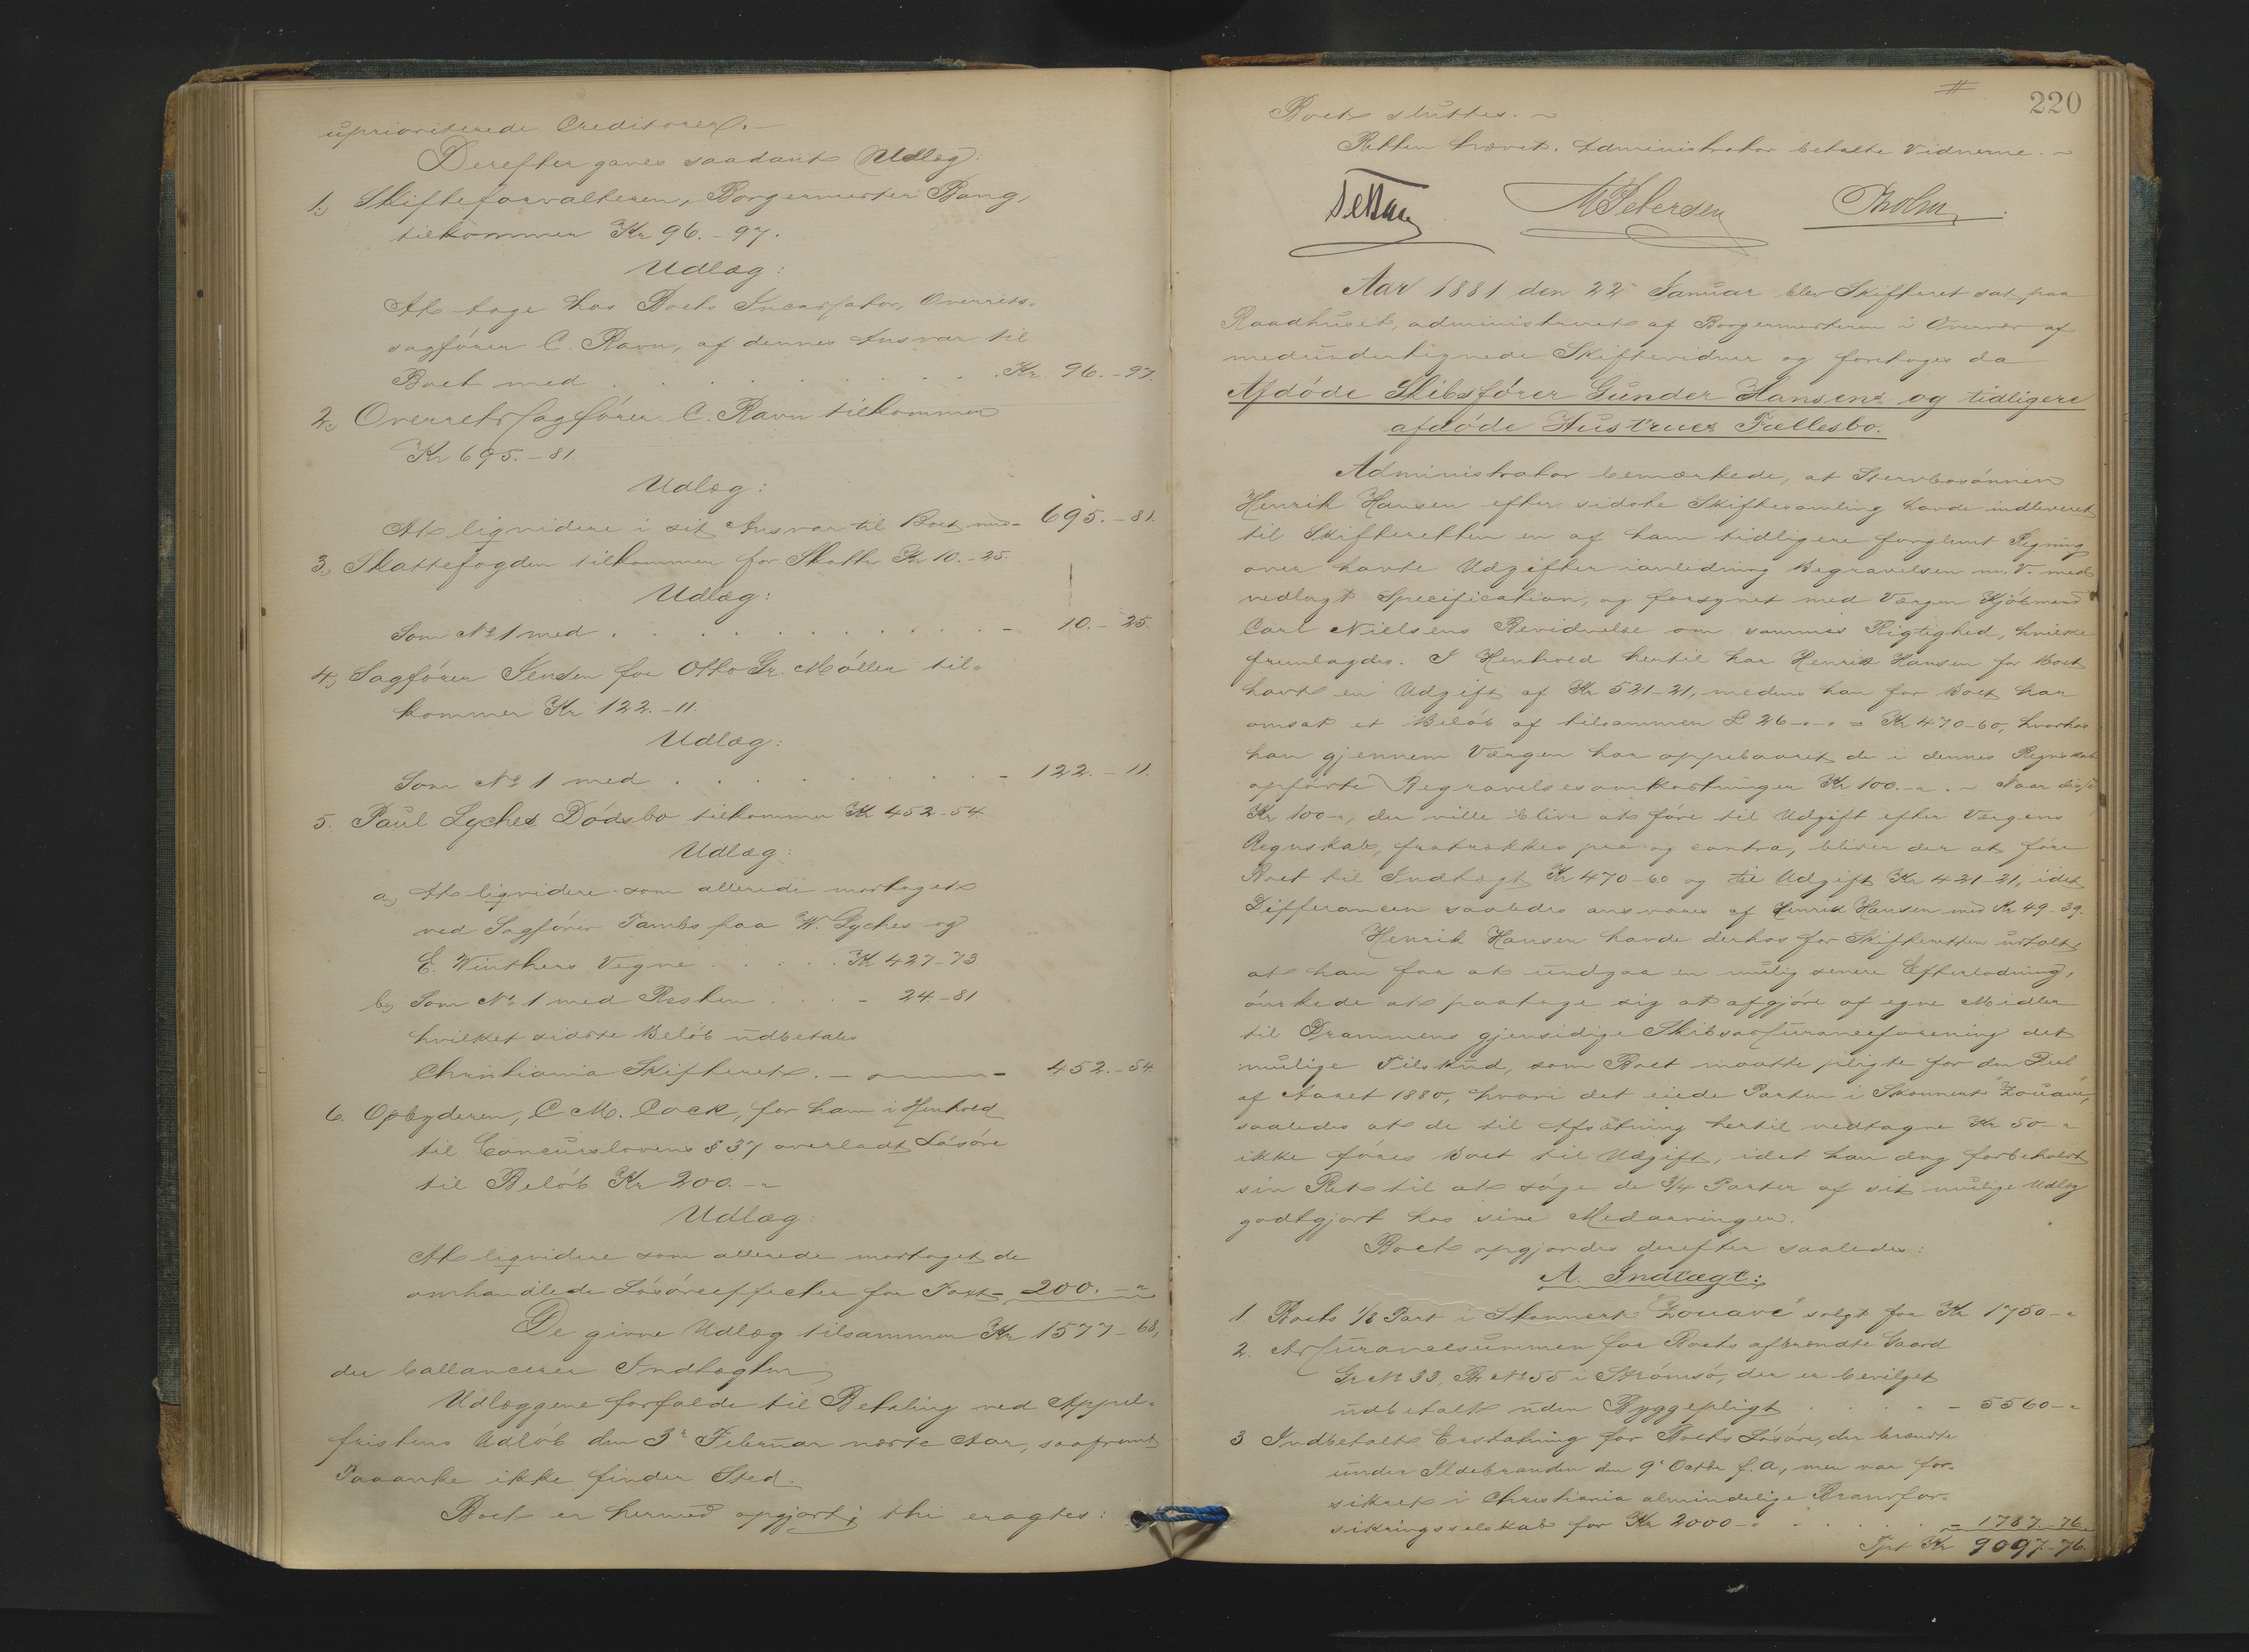 uprioriterede Creditorer. –
Derefter gaves saadant Udlæg:
1., Skifteforvalteren, Borgermester Bang,
tilkommer Kr 96. - 97.
Udlæg:
At tage hos Boets Incassator, Overrets-
sagfører C. Ravn, af dennes Ansvar til
Boet med . . . . . . . . . Kr. 96. - 97.
2., Overretssagfører C. Ravn tilkommer
Kr 695. - 81.
Udlæg:
At liqvidere i sit Ansvar til Boet med - 695. - 81.
3., Skattefogden tilkommer for Skatter Kr 10. - 25.
Udlæg:
Som No 1 med . . . . . . . . . - 10. - 25.
4., Sagfører Jensen for Otto Gr. Møller til-
kommer Kr 122. - 11.
Udlæg:
Som No 1 med . . . . . . . . . - 122. - 11.
5. Paul Lyches Dødsbo tilkommer Kr 452 - 54.
Udlæg:
a., At liqvidere som allerede modtaget
ved Sagfører Tambs paa W. Lyches og
E. Winthers Vegne . . . . . Kr 427 - 73
b., Som No 1 med Resten . . . - 24 - 81
hvilket sidste Beløb udbetales
Christiania Skifteret. - 452. - 54.
6. Opbyderen, C. M. Cock, for ham i Henhold
til Concurslovens § 37 overladt Løsøre
til Beløb Kr 200. - "
Udlæg:
At liqvidere som allerede modtaget de
omhandlede Løsøreeffecter for Taxt - 200. - "
De givne Udlæg tilsammen Kr 1577 - 68,
der ballancerer Indtægten.
Udlæggene forfalde til Betaling ved Appel-
fristens Udløb den 3die Februar næste Aar, saafremt
Paaanke ikke finder Sted.
Boet er hermed opgjort; thi eragtes:
220
Boet sluttes. –
Retten hævet. Administrator betalte Vidnerne. –
M Petersen Tholm
Aar 1881 den 22de Januar blev Skifteret sat paa
Raadhuset, administreret af Borgermesteren i Overvær af
medundertegnede Skiftevidner og foretoges da
Afdøde Skibsfører Gunder Hansens og tidligere
afdøde Hustrues Fællesbo.
Administrator bemærkede, at Stervbosønnen
Henrik Hansen efter sidste Skiftesamling havde indleveret
til Skifteretten en af ham tidligere forglemt Regning
over havte Udgifter ianledning Begravelsen m. V. med
vedlagt Specification, og forsynet med Værgen Kjøbmand
Carl Nielsens Bevidnelse om sammes Rigtighed, hvilke
fremlagdes. I Henhold hertil har Henrik Hansen for Boet
havt en Udgift af Kr 521 - 21, medens han for Boet har
omsat et Beløb af tilsammen £ 26 - " - " = Kr 470 - 60, hvorhos
han gjennem Værgen har oppebaaret de i dennes Regnskab
opførte Begravelsesomkostninger Kr 100. - " . – Naar disse
Kr 100 - ", der ville blive at føre til Udgift efter Værgens
Regnskab, fratrækkes pro og contra, bliver der at føre
Boet til Indtægt Kr 470 - 60 og til Udgift Kr 421 - 21, idet
Differancen saaledes ansvares af Henrik Hansen med Kr 49 - 39.
Henrik Hansen havde derhos for Skifteretten udtalt
at han for at undgaa en mulig senere Efterlodning,
ønskede at paatage sig at afgjøre af egne Midler
til Drammens gjensidige Skibsassuranceforening det
mulige Tilskud, som Boet maatte pligte for den Deel
af Aaret 1880, hvori det eiede Parten i Skonnert "Zouave",
saaledes at de til Afsætning hertil vedtagne Kr 50 - "
ikke føres Boet til Udgift, idet han dog forbeholdt
sin Ret til at søge de 3/4 Parter af sit mulige Udlæg
godtgjort hos sine Medarvinger.
Boet opgjordes derefter saaledes:
A. Indtægt:
1. Boets 1/8 Part i Skonnert "Zouave" solgt for Kr 1750 - "
2. Assurancesummen for Boets afbrændte Gaard
Gr No 33, Br No 55 i Strømsø, der er bevilget
udbetalt uden Byggepligt . . . . - 5560 - "
3 Indbetalt Erstatning for Boets Løsøre, der brændte
under Ildebranden den 9de Octbr f. A., men var for-
sikret i Christiania almindelige Brandfor-
sikringsselskab for Kr 2000 - " . . . . . - 1787. - 76.
Tpt Kr 9097. - 76.